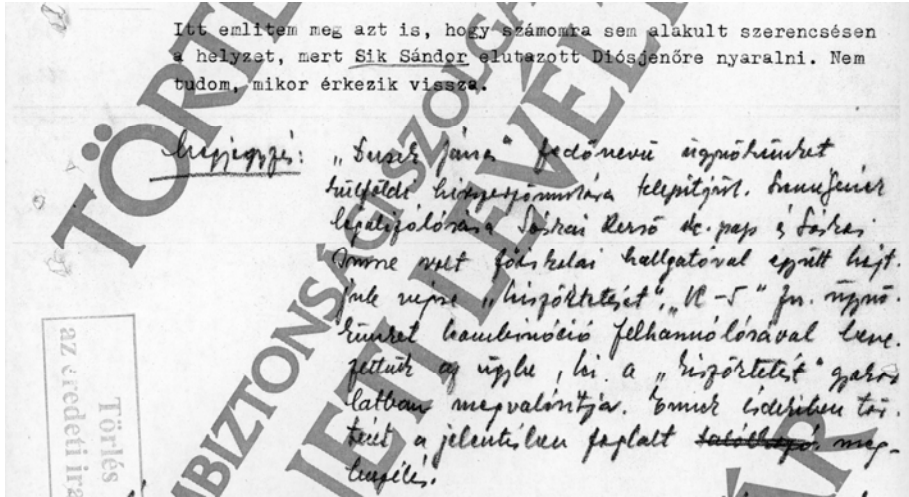 Itt említem meg azt is, hogy számomra sem alakult szerencsésen
a helyzet, mert Sik Sándor elutazott Diósjenőre nyaralni. Nem
tudom, mikor érkezik vissza.
Megjegyzés: „Dusek János" fedőnevű ügynökünket
külföldi hírszerzőmunkára telepítjük.
legalizálására Sáskai Rezső rk. pap és Sáskai
Imre volt főiskolai hallgatóval együtt hajt-
juk végre „kiszöktetését", „K-5" fn. ügynö-
künket kombináció felhasználásával beve-
zettük az ügybe, ki a „kiszöktetést" gyakor-
latban megvalósítja. Ennek érdekében tör-
tént a jelentésben foglalt találkozás meg-
beszélés.
Törlés
az eredeti ira
TÖRTÉ
MBIZTONSÁGI SZOLGÁ
NETI LEVÉLT
ÁR